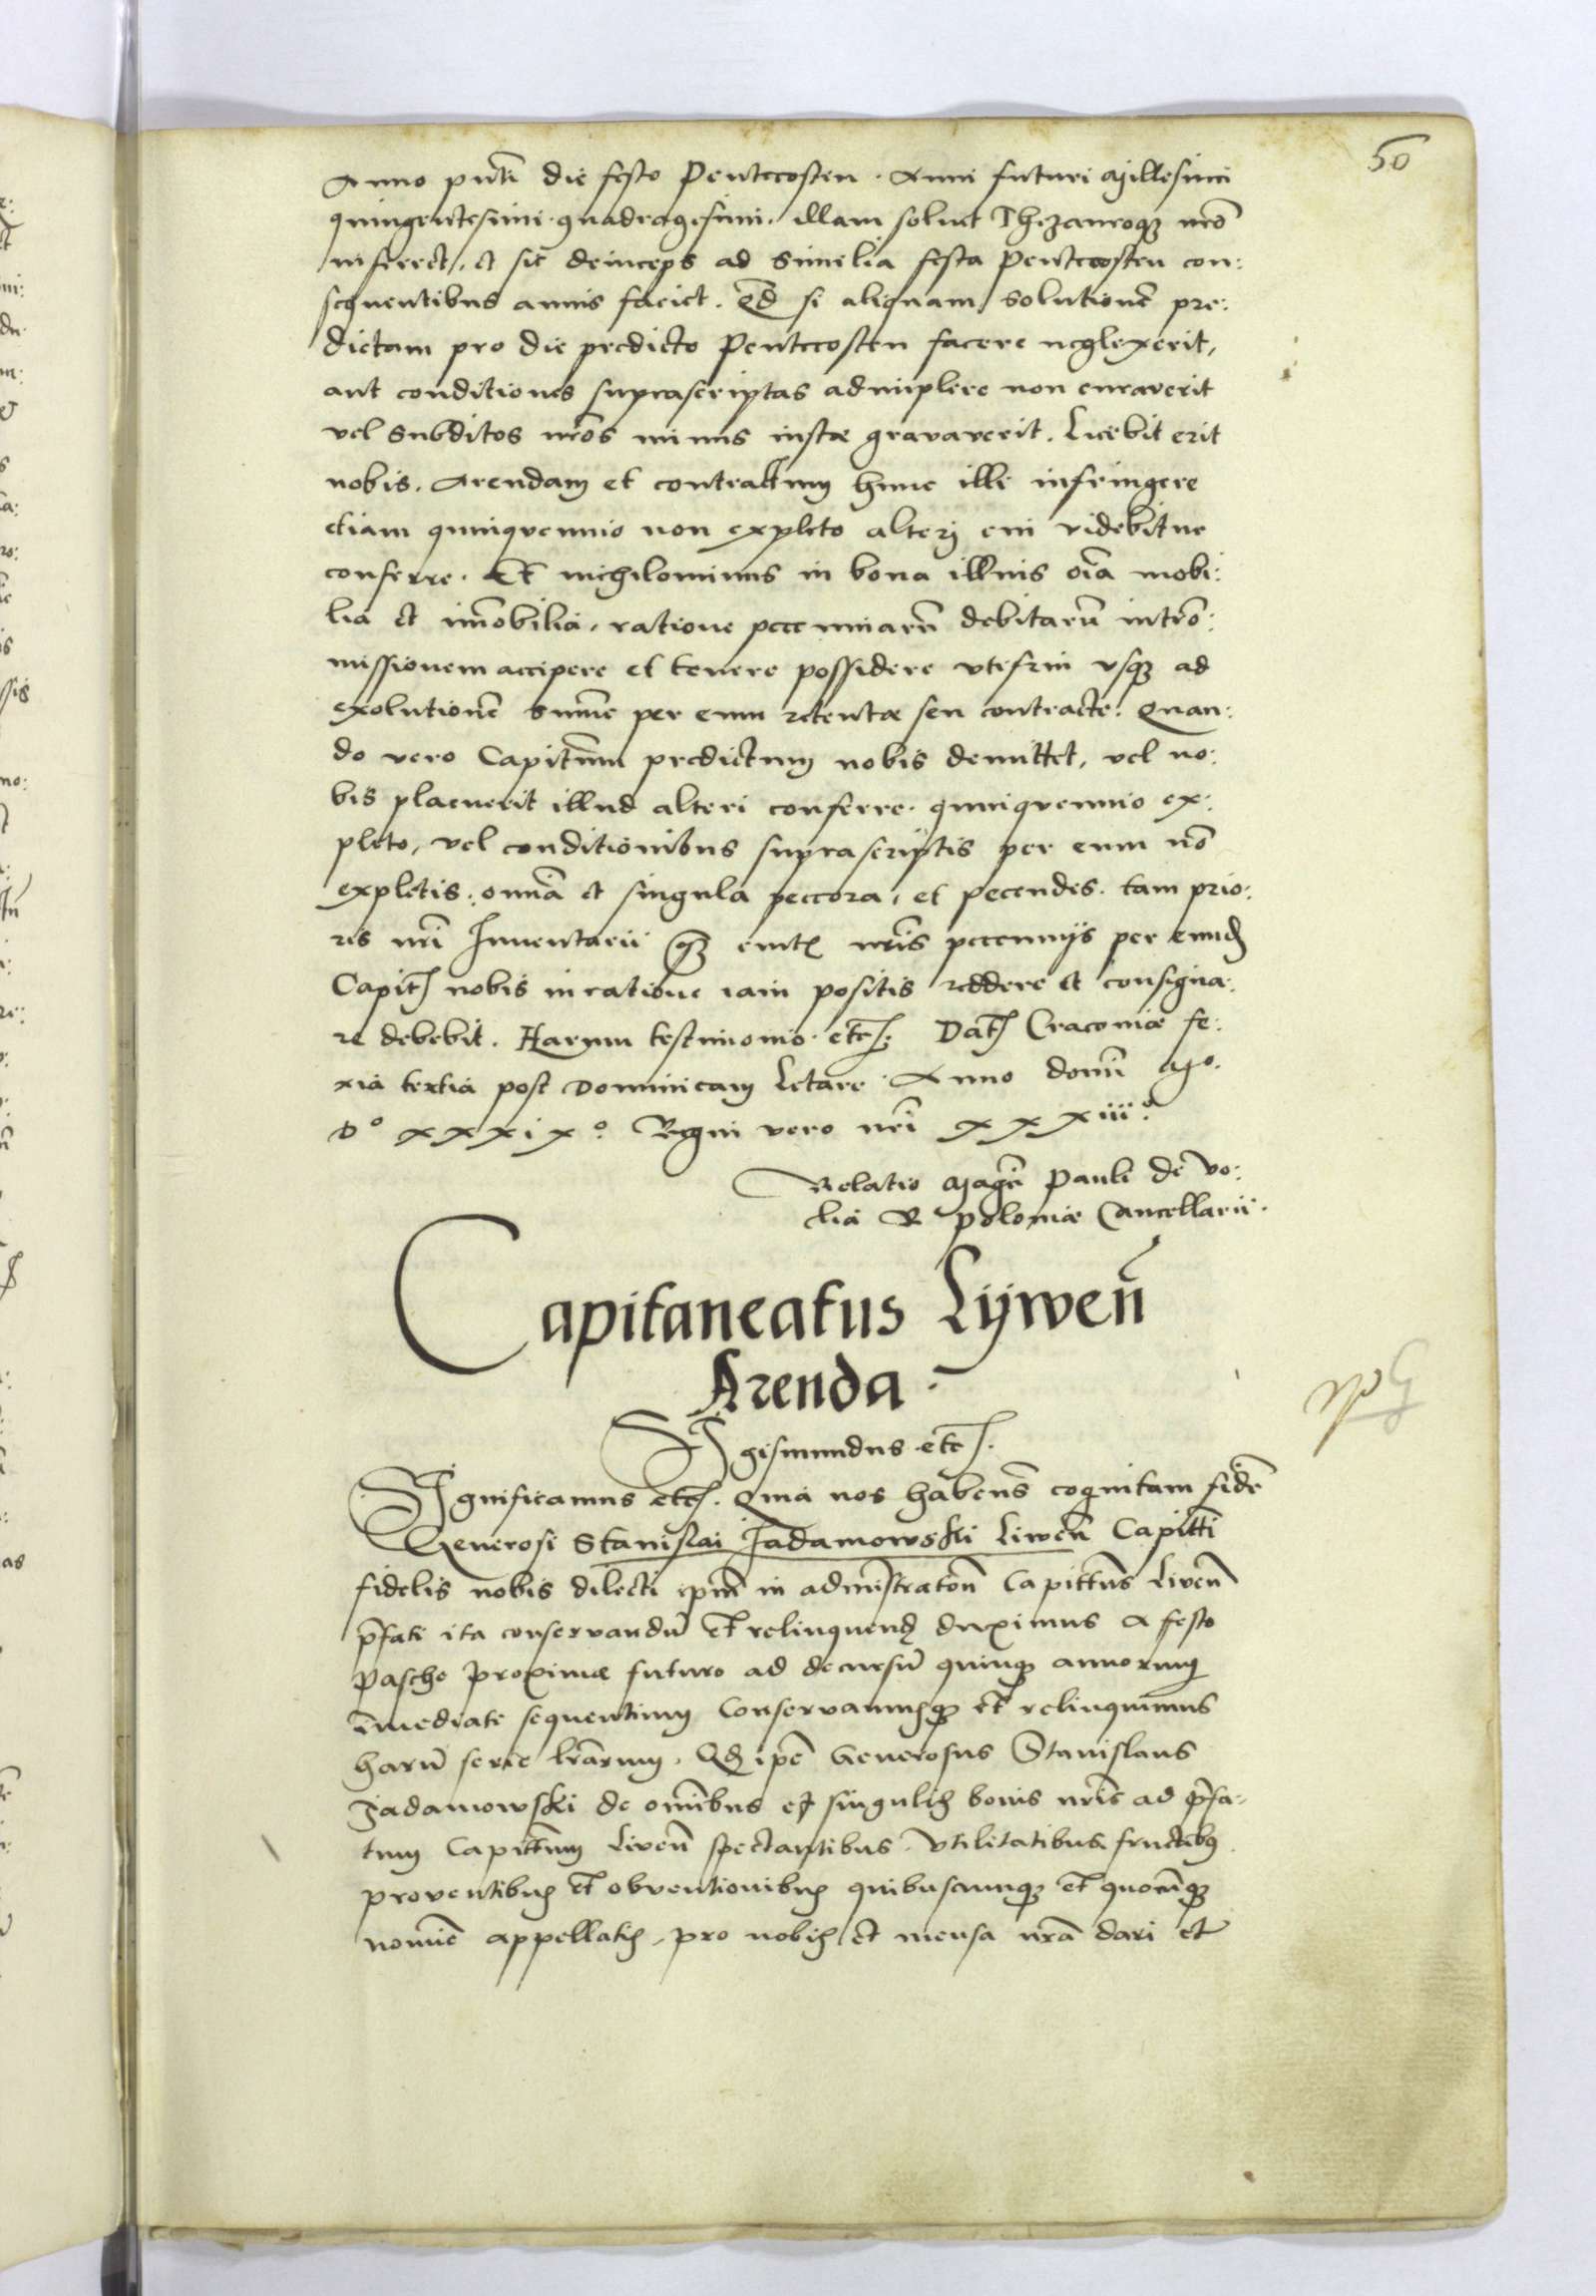 50
Anno pn̄ti die festo Pentecosten. Anni futuri Millesimi
quingentesimi. quadragesimi. illam soluet Thezauroqȝ nr̄o
inferret, et sic deinceps ad similia festa Pentecosten con:
sequentibus annis faciet. Qd̄ si aliquam solutionē pre:
dictam pro die predicto Pentecosten facere neglexerit,
aut conditiones suprascriptas adimplere non curaverit
vel subditos nr̄os minus iustæ gravaverit. Licebit erit
nobis. Arendam et contractum hunc illi infringere
etiam quinquennio non expleto alterj cui videbitur
conferre. Et nichilominus in bona illius oīa mobi:
lia et īmobilia, ratione pecuniarū debitarū intro:
missionem accipere et tenere possidere utifrui usqȝ ad
exolutionē summe per eum retentæ seu contracte. Quan:
do vero Capitn̄um predictum nobis demittet, vel no:
bis placuerit illud alteri conferre. quinquennio ex:
pleto, vel conditionibus suprascriptis per eum nō
expletis. omnia et singula peccora, et pecudes. tam prio:
ris nr̄i Inventarii qȝ empt nr̄is pecuniis per eund
Capit nobis in ratione iam positis reddere et consigna:
re debebit. Harum testimonio etc. Dat Cracoviæ fe:
ria tertia post Dominicam Letare. Anno domī Mo.
Do xxxixo. Regni vero nr̄i xxxiiio.
Relatio Magcī Pauli de Vo:
lia R Poloniæ Cancellarii.
Capitaneatus Lijwen̄
Arenda.
Sigismundus etc.
Significamus etc. Quia nos habens̄ cognitam fidē
Generosi Stanislai Jadamowski Liwen̄ Capittī
fidelis nobis dilecti ipm̄ in admīstratōn Capittn̄s Livēn
p̄fati ita conservandū et relinquend duximus a festo
Pasche proximæ futuro ad decursū quinqȝ annorum
īmediate sequentium Conservamusqȝ et relinquimus
harū serie lr̄arum. Qd ipē Generosus Stanislaus
Jadamowski de omībus et singulis bonis nr̄is ad p̄fa-
tum Capittn̄um Liven̄ spectantibus. utilitatibus fructibus
proventibus et obventionibus quibuscumqȝ et quocūqȝ
nomīe appellatis, pro nobis et mensa nr̄a dari et